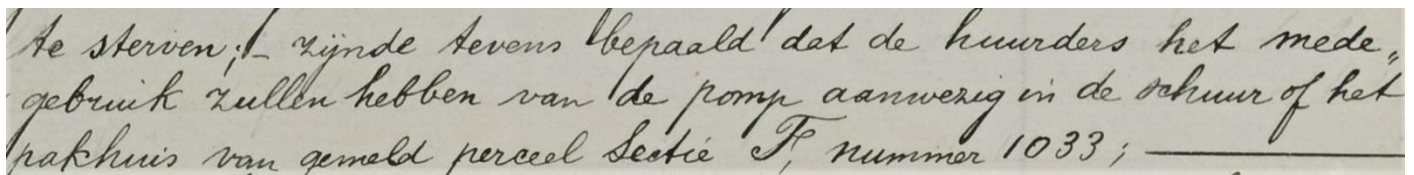 te sterven;- zijnde tevens bepaald dat de huurders het mede„
gebruik zullen hebben van de pomp aanwezig in de schuur of het
pakhuis van gemeld perceel Sectie F, nummer 1033; ———